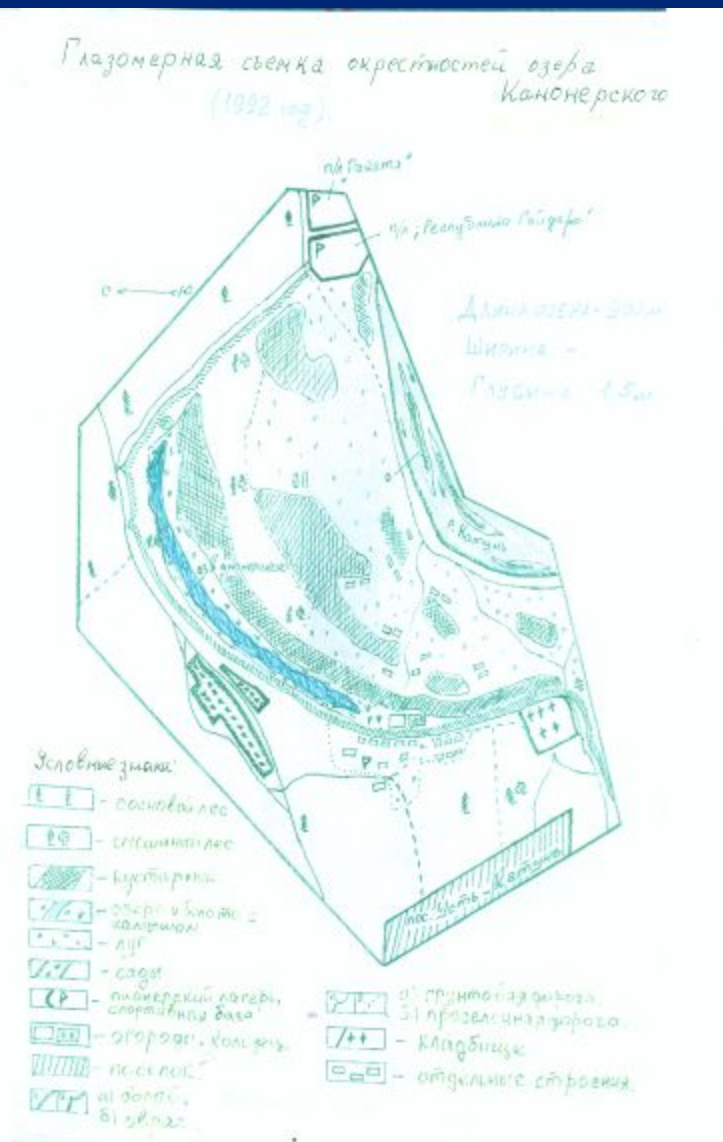 Глазомерная съемка окрестностей озера
Канонерского
(1992 год).
п/л
п/л „Республика Гайдара"
С Ю
Длина озера -
Ширина -
Глубина 1.5м
р. Катунь
оз. Канонерское
пос. Усть-Катунь
Условные знаки:
- сосновый лес
- смешанный лес
- кустарник
- озеро и болото с
камышом
- луг
- сады
- пионерский лагерь,
спортивная база
- огороды, колодец
- поселок
а) обрыв,
б) овраг
а) грунтовая дорога
б) проселочная дорога.
- кладбище
- отдельные строения.